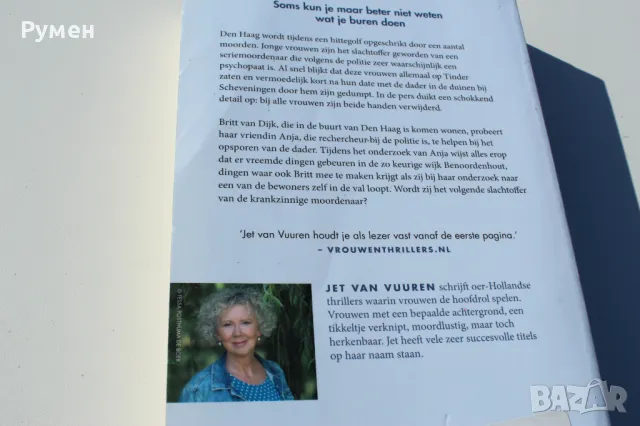 Румен
Soms kun je maar beter niet weten
wat je buren doen
Den Haag wordt tijdens een hittegolf opgeschrikt door een aantal
moorden. Jonge vrouwen zijn het slachtoffer geworden van een
seriemoordenaar die volgens de politie zeer waarschijnlijk een
psychopaat is. Al snel blijkt dat deze vrouwen allemaal op Tinder
zaten en vermoedelijk kort na hun date met de dader in de duinen bij
Scheveningen door hem zijn gedumpt. In de pers duikt een schokkend
detail op: bij alle vrouwen zijn beide handen verwijderd.
Britt van Dijk, die in de buurt van Den Haag is komen wonen, probeert
haar vriendin Anja, die rechercheur bij de politie is, te helpen bij het
opsporen van de dader. Tijdens het onderzoek van Anja wijst alles erop
dat er vreemde dingen gebeuren in de zo keurige wijk Benoordenhout,
dingen waar ook Britt mee te maken krijgt als zij bij haar onderzoek naar
een van de bewoners zelf in de val loopt. Wordt zij het volgende slachtoffer
van de krankzinnige moordenaar?
'Jet van Vuuren houdt je als lezer vast vanaf de eerste pagina.'
– VROUWENTHRILLERS.NL
JET VAN VUUREN schrijft oer-Hollandse
thrillers waarin vrouwen de hoofdrol spelen.
Vrouwen met een bepaalde achtergrond, een
tikkeltje verknipt, moordlustig, maar toch
herkenbaar. Jet heeft vele zeer succesvolle titels
op haar naam staan.
BAZAR